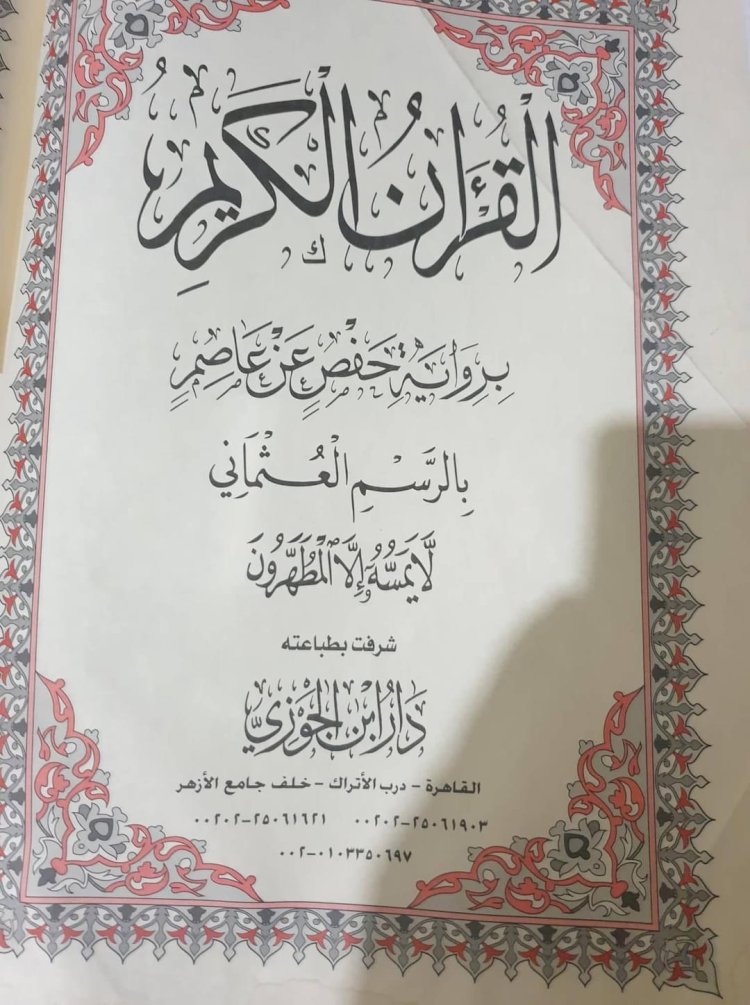 الْقُرْءَانُ الْكَرِيمُ
بِرِوَايَةِ حَفْصٍ عَنْ عَاصِمٍ
بِالرَّسْمِ الْعُثْمَانِي
لَّا يَمَسُّهُۥٓ إِلَّا الْمُطَهَّرُونَ
شرفت بطباعته
دَارُ ابْنِ الْجَوْزِيِّ
القاهرة - درب الأتراك - خلف جامع الأزهر
٠٠٢٠٢-٢٥٠٦١٩٠٣ ٠٠٢٠٢-٢٥٠٦١٦٢١
٠٠٢-٠١٠٣٣٥٠٦٩٧